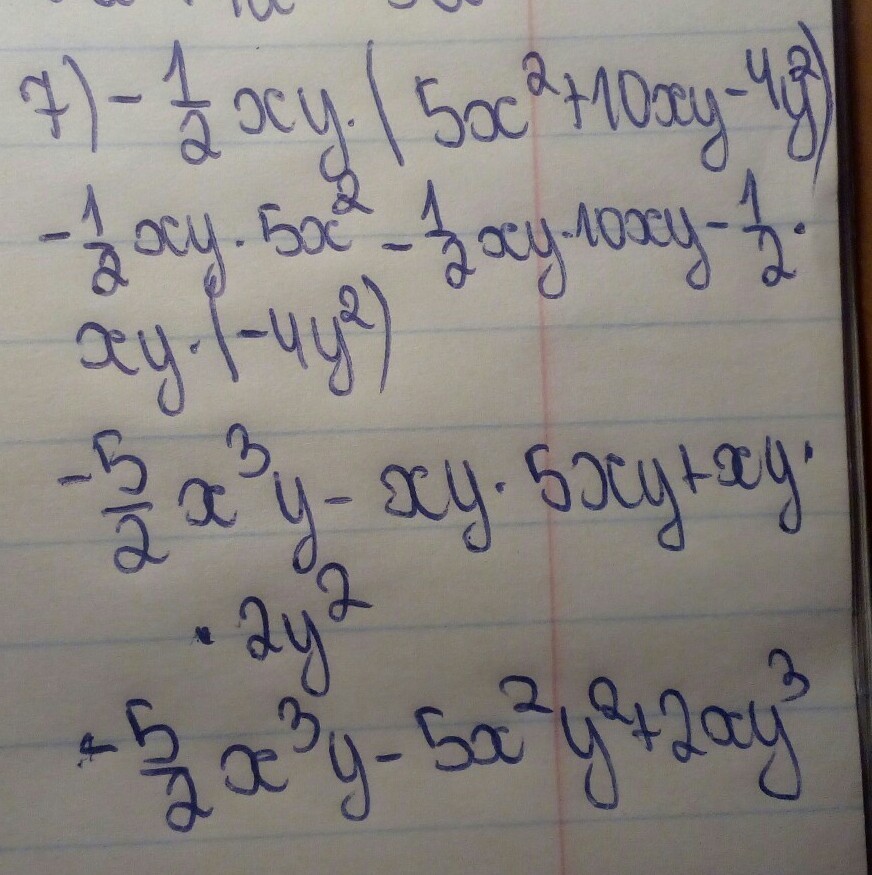 7) -1/2 xy·(5x²+10xy-4y²)
-1/2 xy·5x² -1/2 xy·10xy -1/2·
xy·(-4y²)
-5/2 x³y - xy·5xy+xy·
·2y²
-5/2 x³y - 5x²y²+2xy³